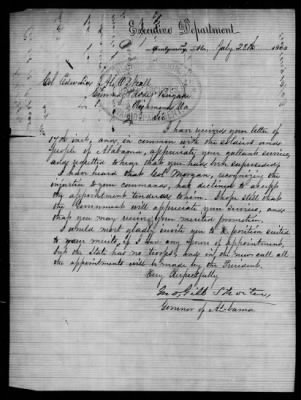 Executive Department,
Montgomery, Ala, July 28th 1863
Col Edward A. O'Neal
Comdg Rodes' Brigade
Richmond Va
Sir
I have received your letter of
17th inst, and, in common with the soldiers and
People of Alabama, appreciate your gallant services,
and regretted to hear that you have been superseded.
I have heard that Col Morgan, recognizing the
injustice to your command, has declined to accept
the appointment tendered to him. I hope still that
the Government will appreciate your services, and
that you may receive your merited promotion.
I would most gladly invite you to a position suited
to your merits, if I had any power of appointment,
but the State has no troops, and in the new call all
the appointments will be made by the President.
Very Respectfully
Jno Gill Shorter,
Governor of Alabama